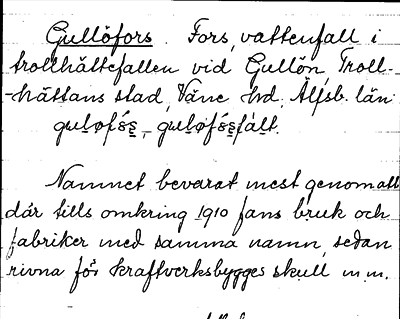 Gullöfors. Fors, vattenfall i
trollhättefallen vid Gullön, Troll-
-hättans stad, Väne hd. Älfsb. län.
Namnet bevarat mest genom att
där tills omkring 1910 fans bruk och
fabriker med samma namn, sedan
rivna för kraftverksbygges skull m.m.